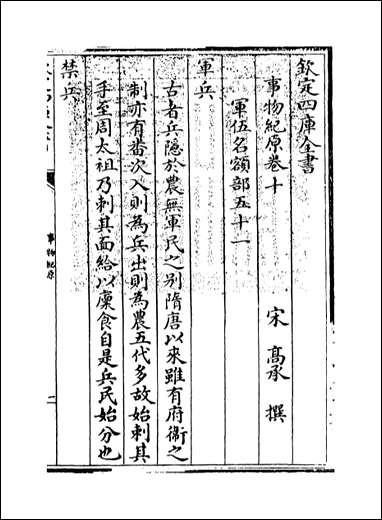 欽定四庫全書
事物紀原卷十
宋 髙承 撰
軍伍名額部五十一
軍兵
古者兵隱於農無軍民之别隋唐以來雖有府衞之
制亦有畨次入則為兵出則為農五代多故始刺其
手至周太祖乃刺其面給以廩食自是兵民始分也
禁兵
事物紀原